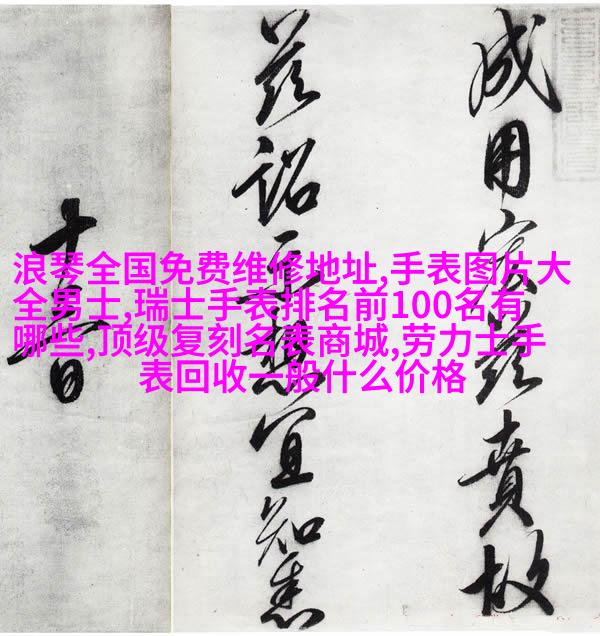 成用宏兹賁故
兹詔示想宜知悉
浪琴全国免费维修地址,手表图片大
全男士,瑞士手表排名前100名有
哪些,顶级复刻名表商城,劳力士手
表回收一般什么价格